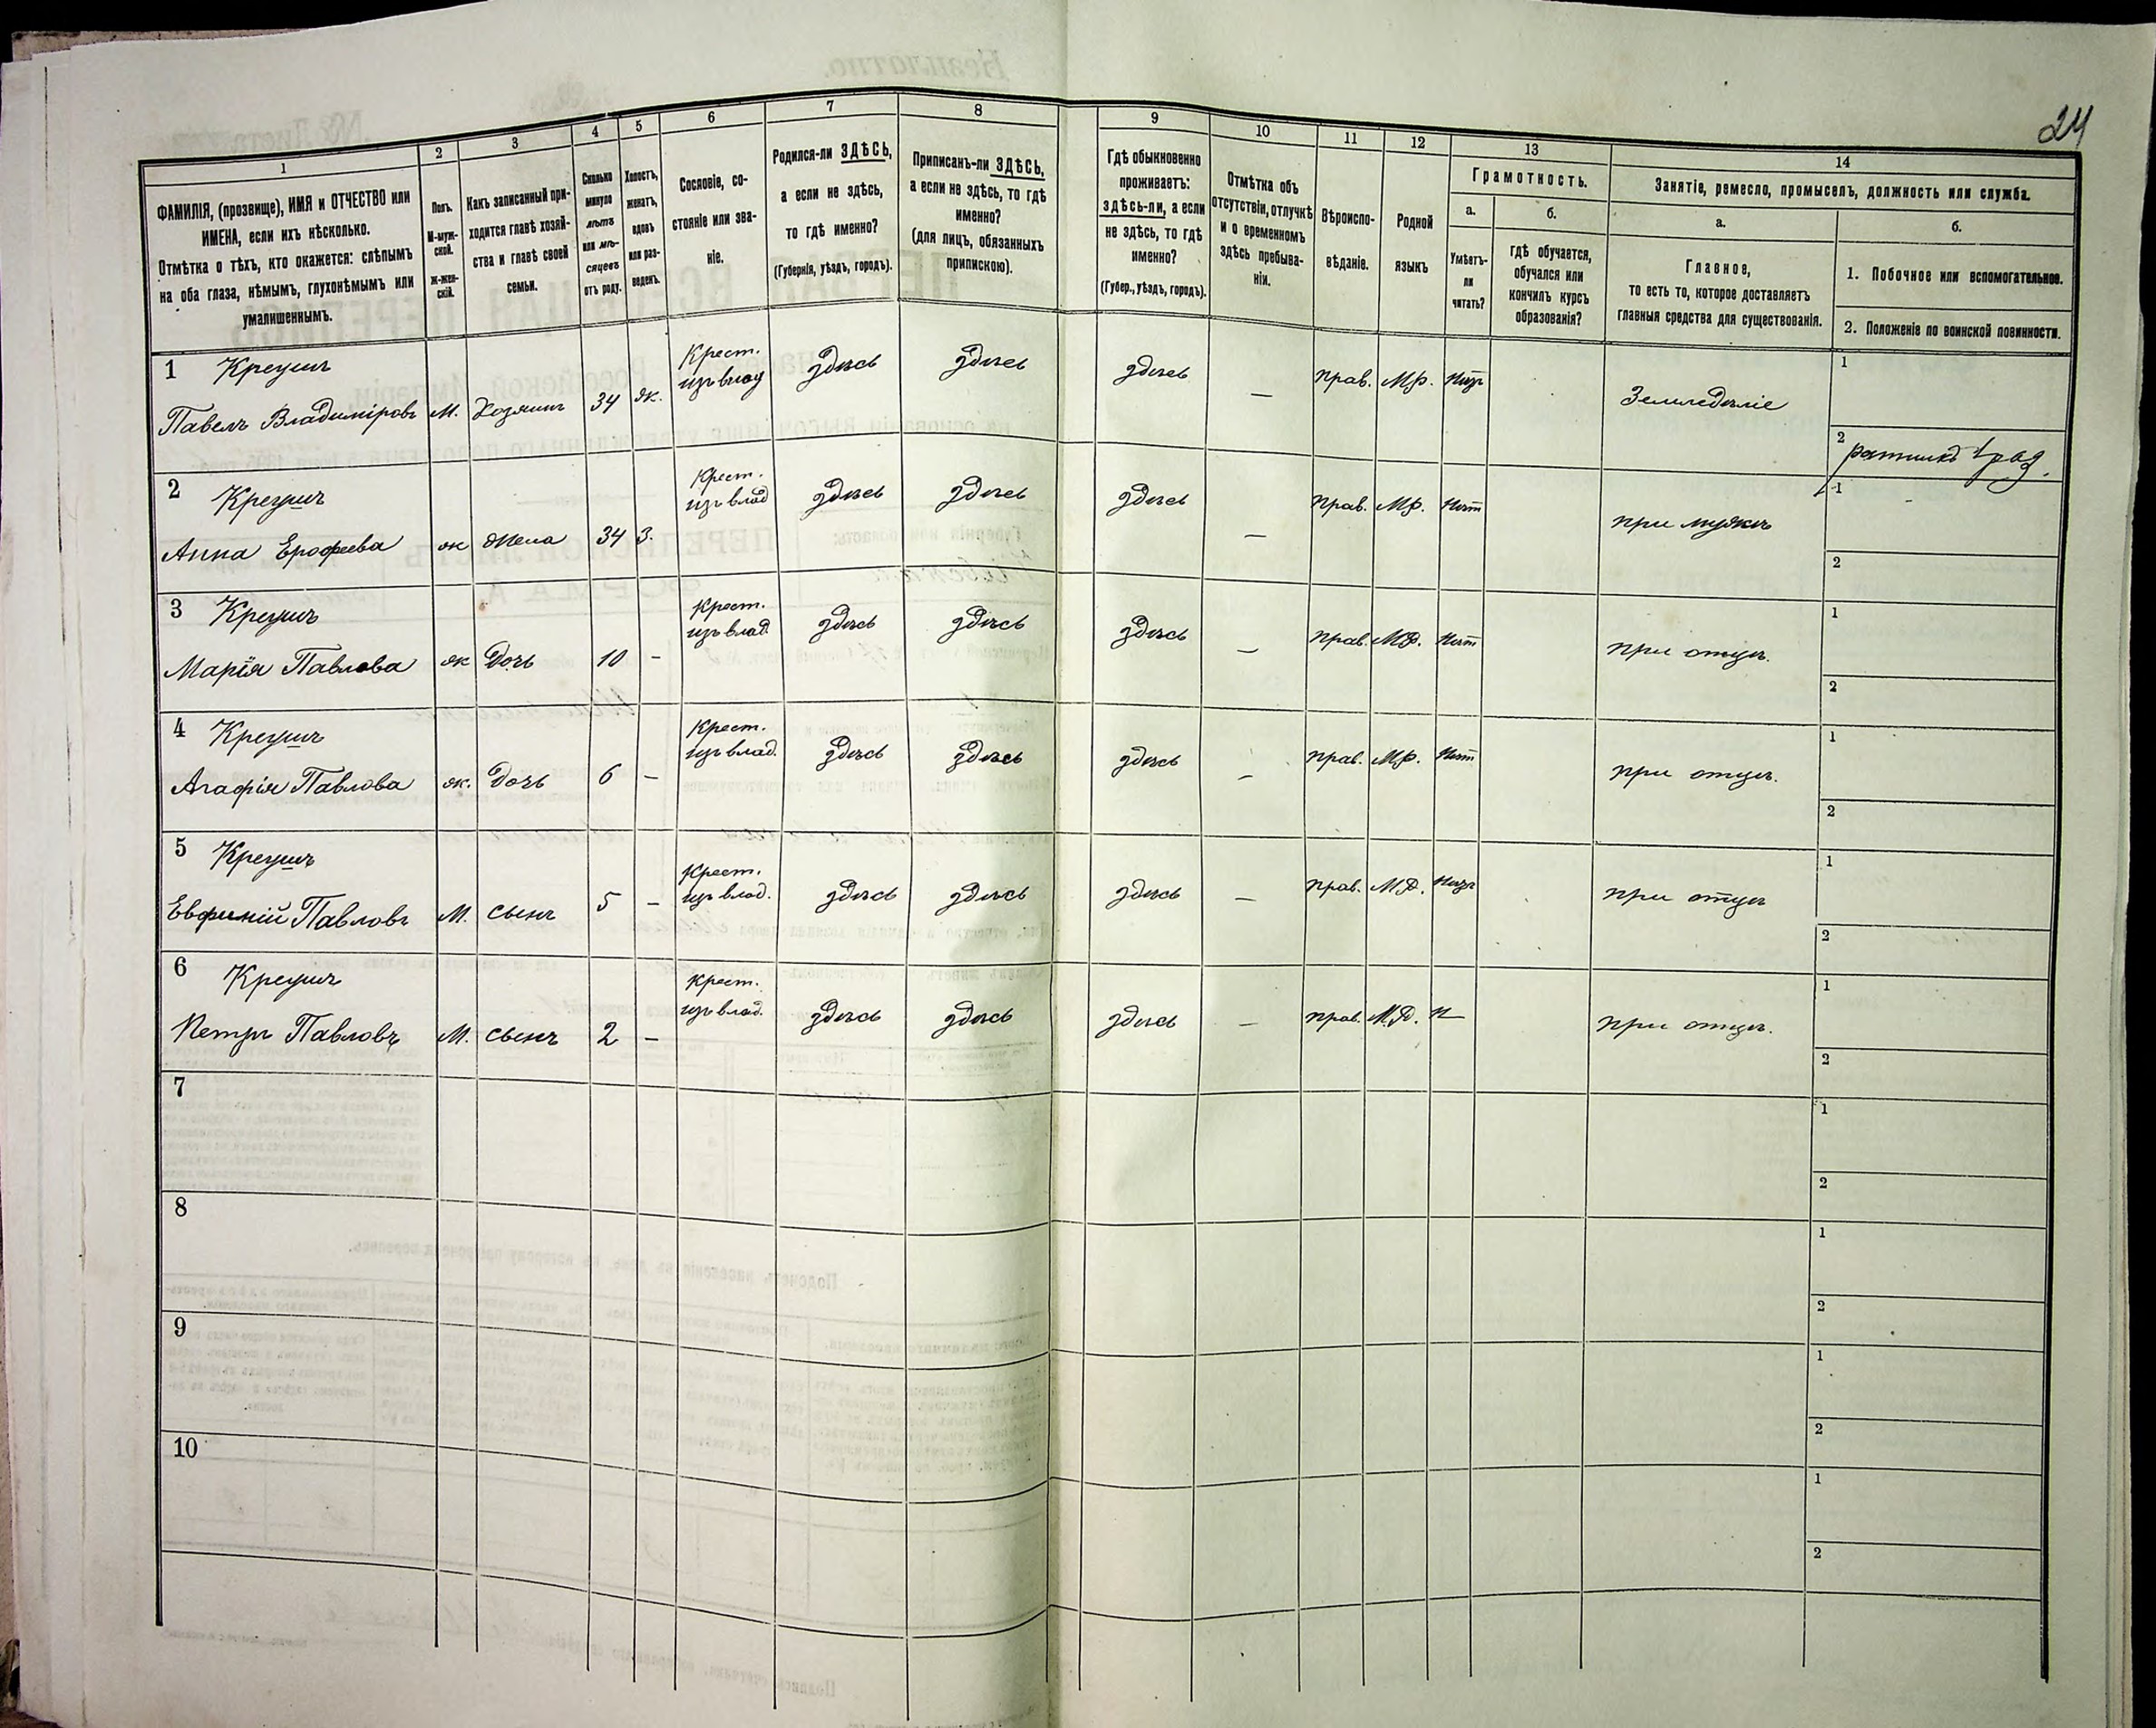 24
1
2
3
4
5
6
7
8
9
10
11
12
13
14
ФАМИЛІЯ, (прозвище), ИМЯ и ОТЧЕСТВО или
ИМЕНА, если ихъ нѣсколько.
Отмѣтка о тѣхъ, кто окажется: слѣпымъ
на оба глаза, нѣмымъ, глухонѣмымъ или
умалишеннымъ.
Полъ.
М-муж-
ской.
Ж-жен-
скій.
Какъ записанный при-
ходится главѣ хозяй-
ства и главѣ своей
семьи.
Сколько
минуло
лѣтъ
или мѣ-
сяцевъ
отъ роду.
Холостъ,
женатъ,
вдовъ
или раз-
веденъ.
Сословіе, со-
стояніе или зва-
ніе.
Родился-ли ЗДѢСЬ,
а если не здѣсь,
то гдѣ именно?
(Губернія, уѣздъ, городъ).
Приписанъ-ли ЗДѢСЬ,
а если не здѣсь, то гдѣ
именно?
(для лицъ, обязанныхъ
припискою).
Гдѣ обыкновенно
проживаетъ:
здѣсь-ли, а если
не здѣсь, то гдѣ
именно?
(Губер., уѣздъ, городъ).
Отмѣтка объ
отсутствіи, отлучкѣ
и о временномъ
здѣсь пребыва-
ніи.
Вѣроиспо-
вѣданіе.
Родной
языкъ
Грамотность.
а.
б.
Умѣетъ-
ли
читать?
гдѣ обучается,
обучался или
кончилъ курсъ
образованія?
Занятіе, ремесло, промыселъ, должность или служба.
а.
б.
Главное,
то есть то, которое доставляетъ
главныя средства для существованія.
1. Побочное или вспомогательное.
2. Положеніе по воинской повинности.
1
Павелъ Владиміровъ М. Хозяинъ 34 ж. Крест. изъ влад здѣсь здѣсь здѣсь — прав. М.р. Земледѣліе
1
2 ратникъ 1 раз.
2
Анна Ерофеева ж жена 34 з. Крест. изъ влад здѣсь здѣсь здѣсь — прав. М.р. нѣт при мужѣ
1
2
3
Марія Павлова ж Дочь 10 - Крест. изъ влад. здѣсь здѣсь здѣсь — прав. М.р. нѣт при отцѣ.
1
2
4
Агафія Павлова ж. Дочь 6 - Крест. изъ влад. здѣсь здѣсь здѣсь — прав. М.р. нѣт при отцѣ.
1
2
5
Павловъ М. сынъ 5 - Крест. изъ влад. здѣсь здѣсь здѣсь — прав. М.р. при отцѣ
1
2
6
Петръ Павловъ М. сынъ 2 — Крест. изъ влад. здѣсь здѣсь здѣсь — прав. М.р. н— при отцѣ.
1
2
7
1
2
8
1
2
9
1
2
10
1
2